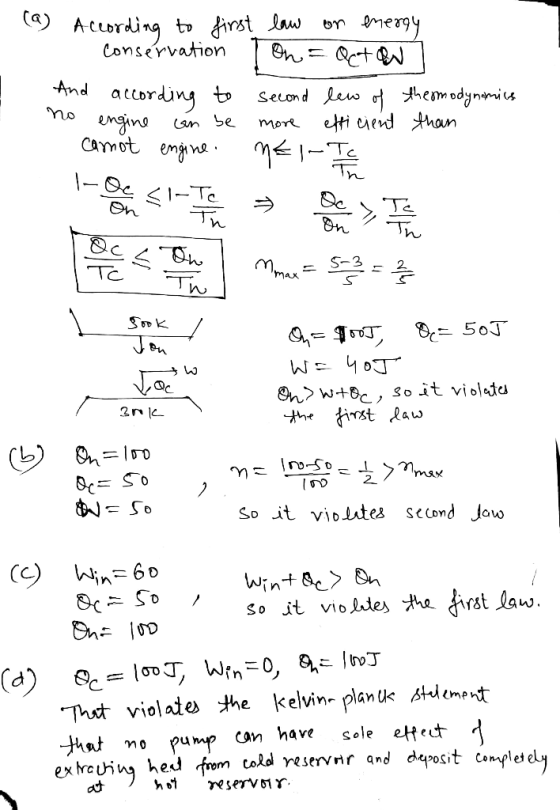 (a) According to first law on energy
conservation Qh = Qc + W
And according to second law of thermodynamics
no engine can be more efficient than
carnot engine. η ≤ 1 - Tc/Th
1 - Qc/Qh ≤ 1 - Tc/Th ⇒ Qc/Qh ≥ Tc/Th
Qc/Tc ≤ Qh/Th ηmax = 5-3/5 = 2/5
500K
Qh
W
Qc
300K
Qh = 100J, Qc = 50J
W = 40J
Qh > W + Qc, so it violates
the first law
(b) Qh = 100
Qc = 50 , η = 100-50/100 = 1/2 > ηmax
W = 50 so it violates second law
(c) Win = 60 Win + Qc > Qh
Qc = 50 , so it violates the first law.
Qh = 100
(d) Qc = 100J, Win = 0, Qh = 100J
That violates the kelvin-planck statement
that no pump can have sole effect of
extracting heat from cold reservoir and deposit completely
at hot reservoir.